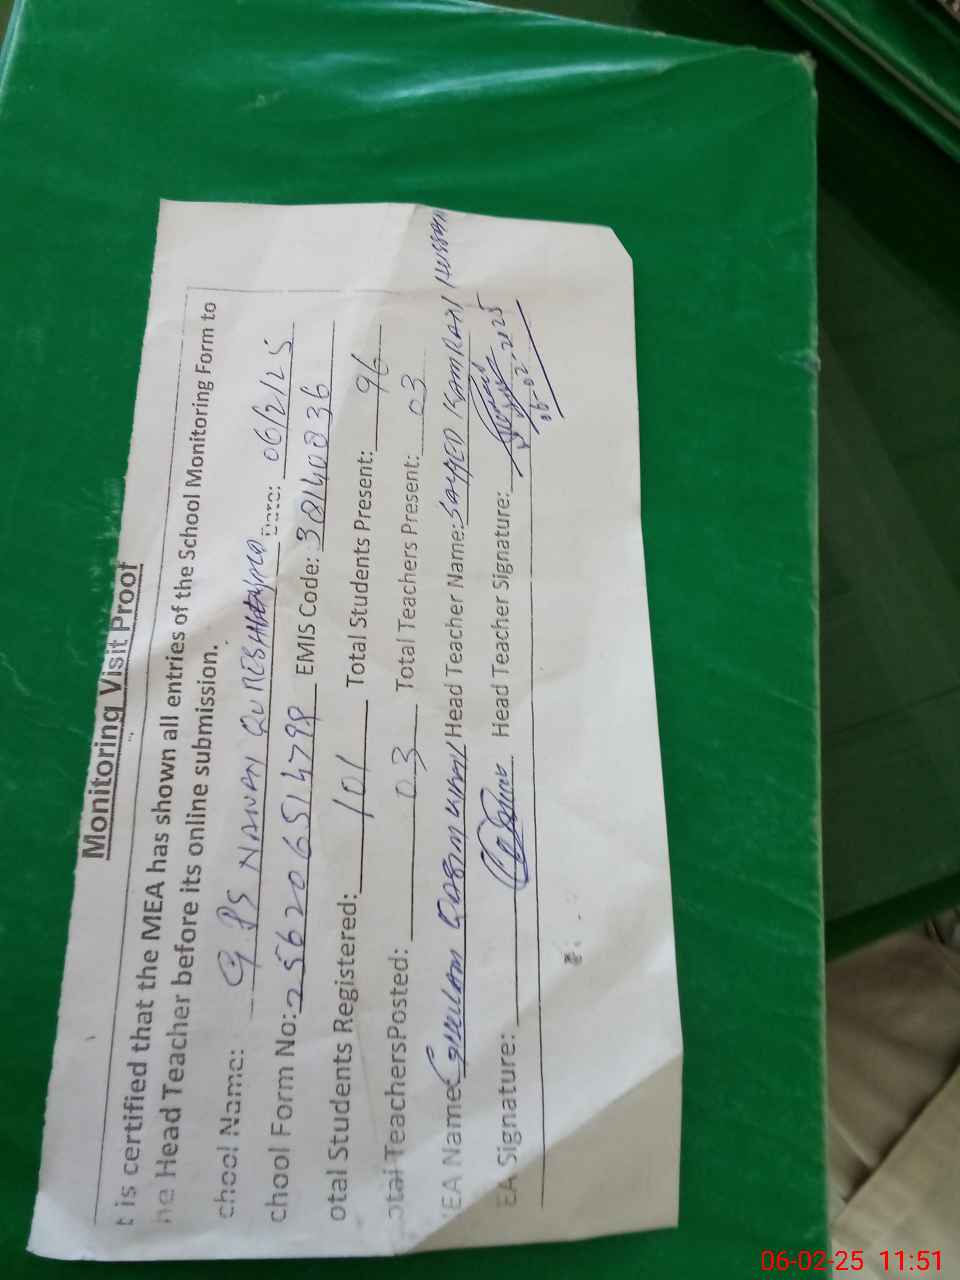 Monitoring Visit Proof
t is certified that the MEA has shown all entries of the School Monitoring Form to
he Head Teacher before its online submission.
chool Name: G.PS NANAN QURESHI Date: 06/2/25
chool Form No: 256206514798 EMIS Code: 38140836
otal Students Registered: 101 Total Students Present: 96
otal TeachersPosted: 03 Total Teachers Present: 03
EA Name: GHULAM QASIM Head Teacher Name: SAYYED KAMRAN HUSSAIN
EA Signature: Head Teacher Signature:
06-02-2025
06-02-25 11:51